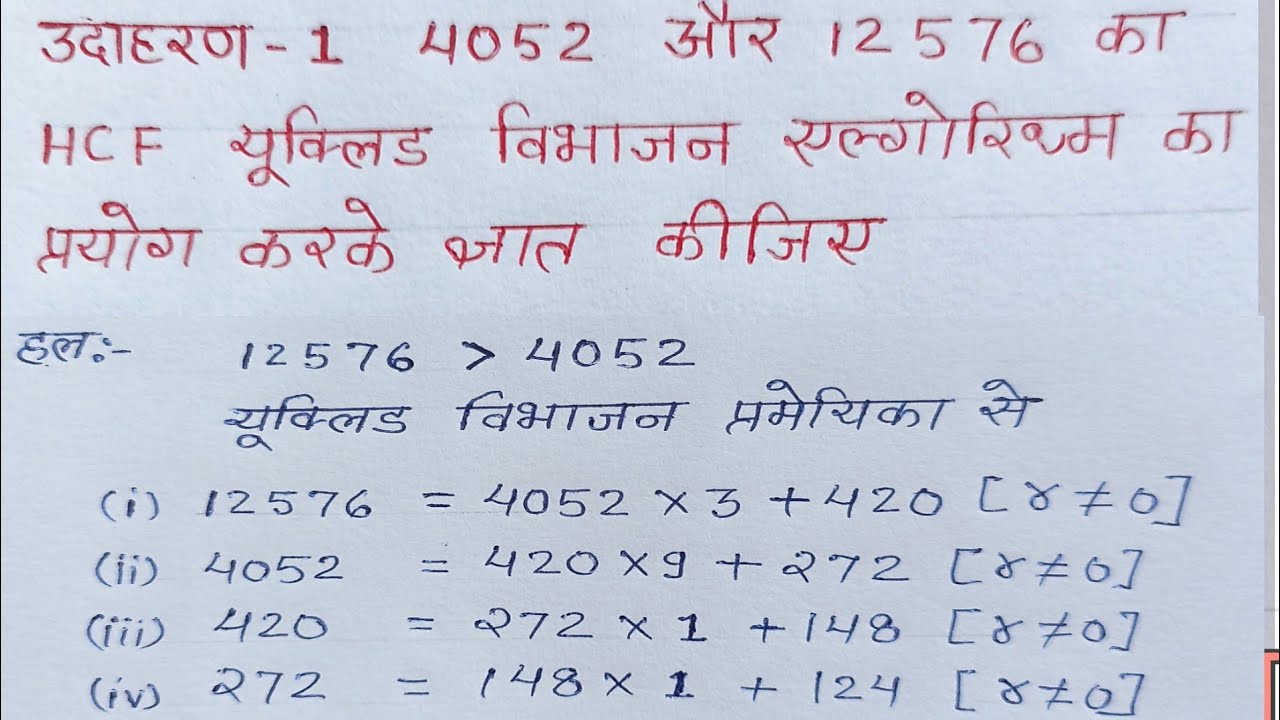 उदाहरण - 1 4052 और 12576 का
HCF यूक्लिड विभाजन एल्गोरिथ्म का
प्रयोग करके ज्ञात कीजिए
हल:- 12576 > 4052
यूक्लिड विभाजन प्रमेयिका से
(i) 12576 = 4052 × 3 + 420 [r ≠ 0]
(ii) 4052 = 420 × 9 + 272 [r ≠ 0]
(iii) 420 = 272 × 1 + 148 [r ≠ 0]
(iv) 272 = 148 × 1 + 124 [r ≠ 0]